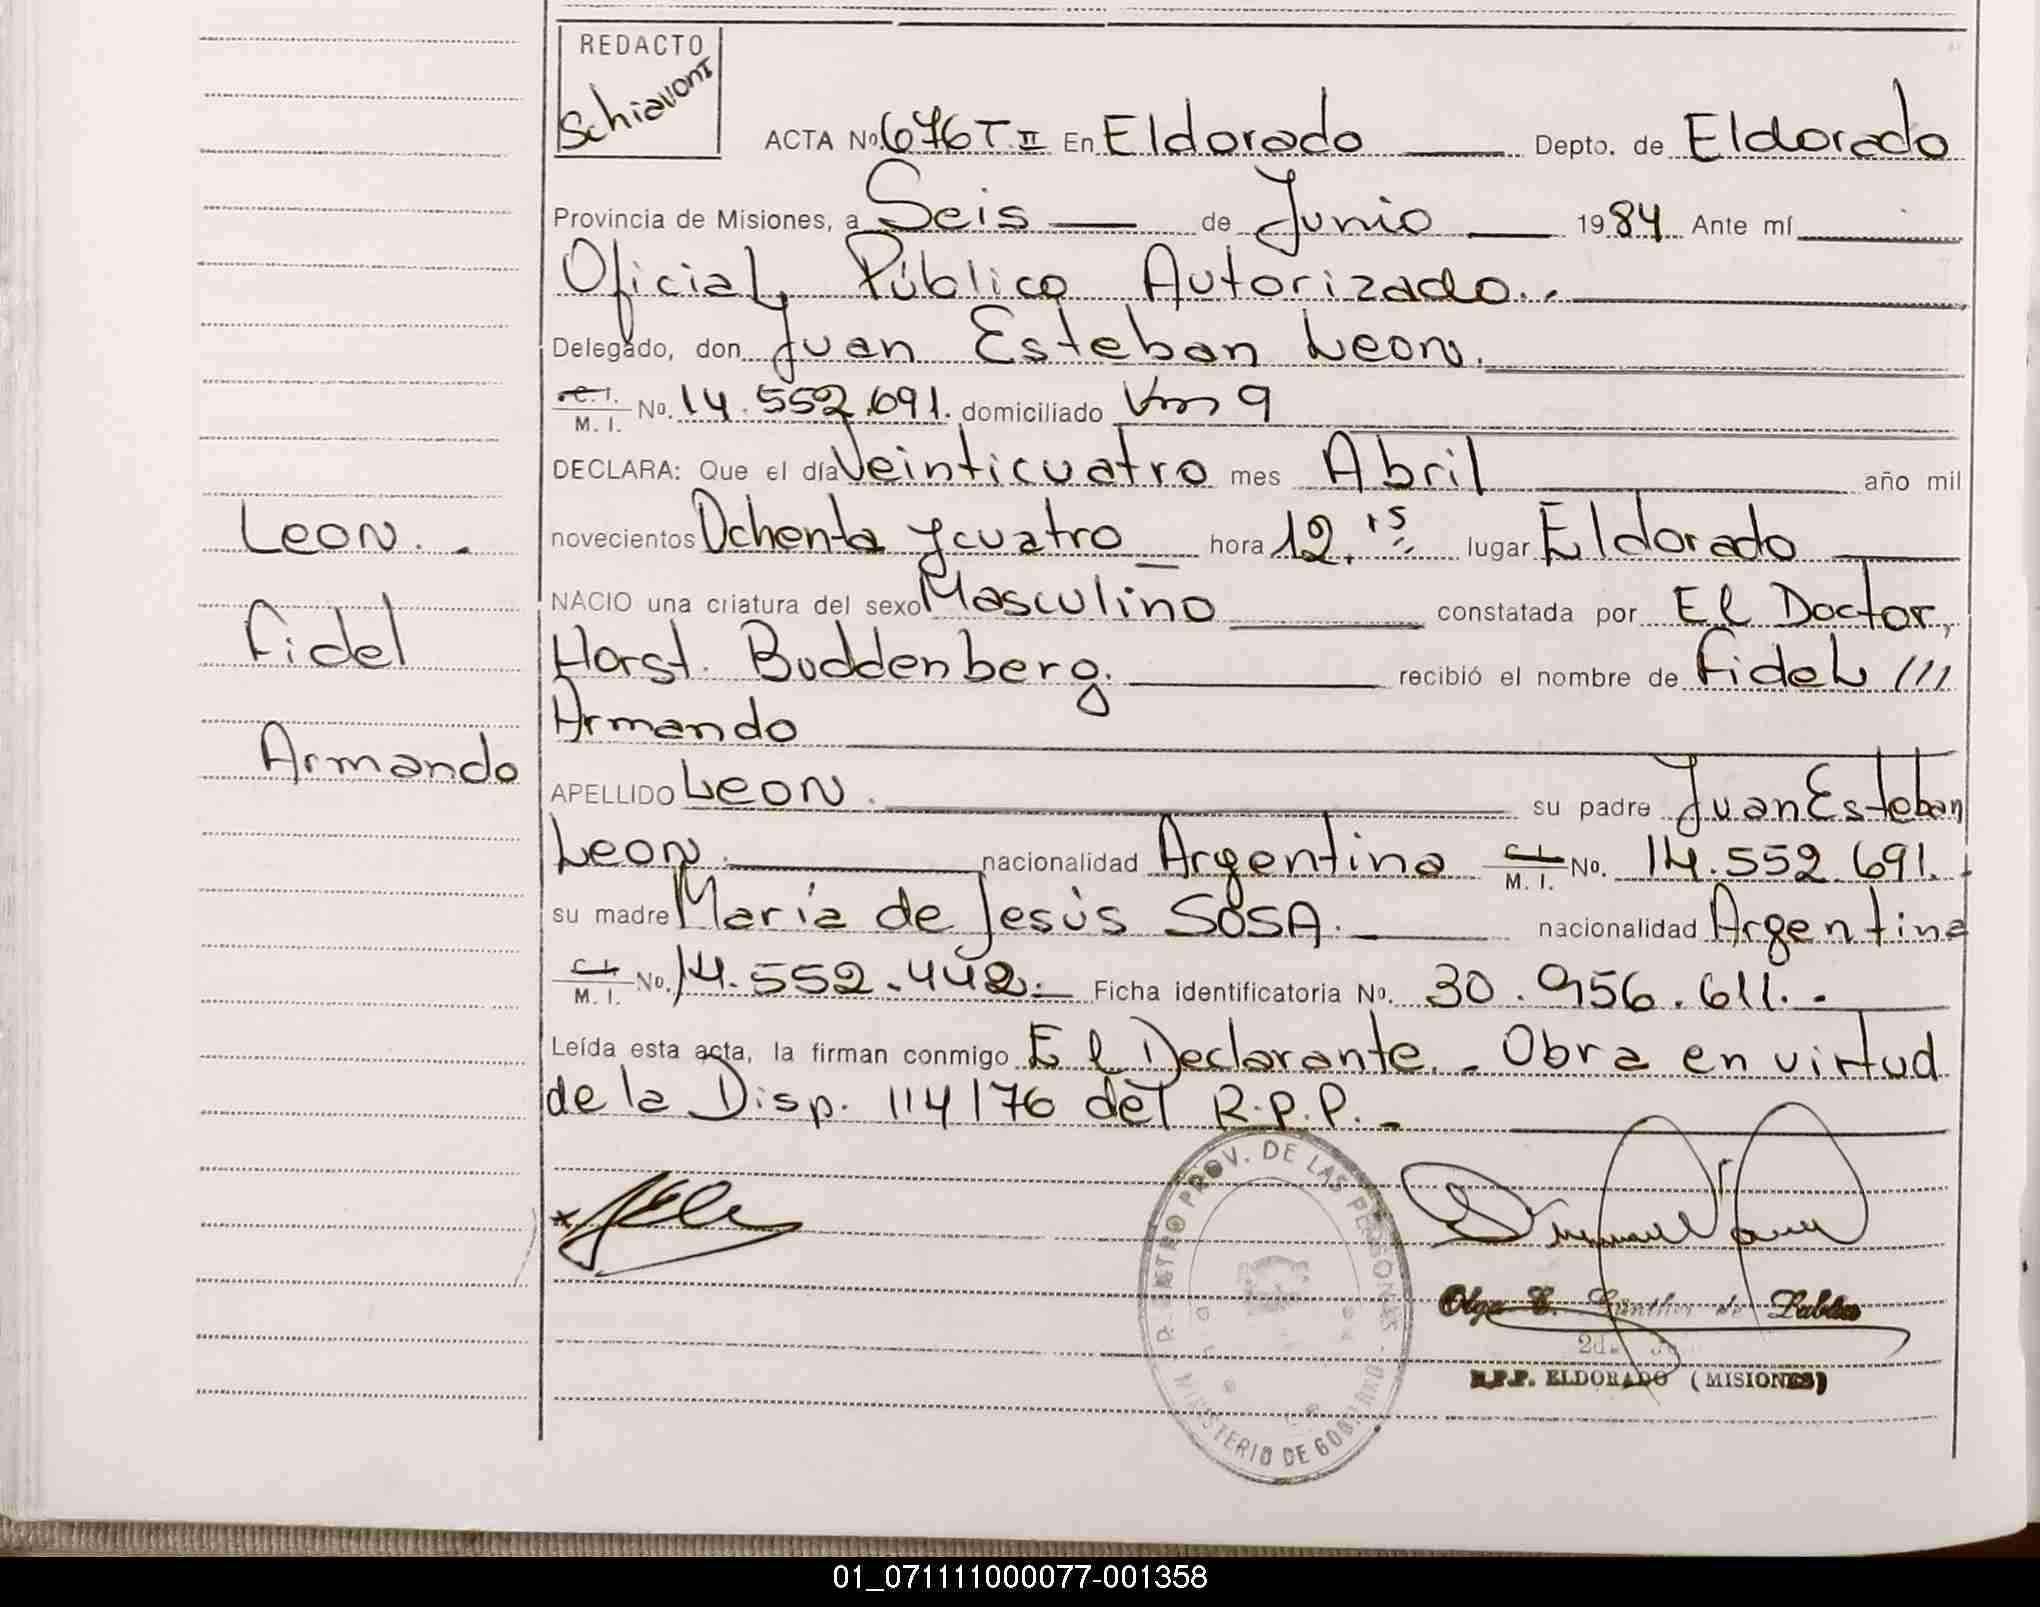 REDACTO
Schiavoni
ACTA Nº. 676 T. II En Eldorado Depto. de Eldorado
Provincia de Misiones, a Seis de Junio 1984 Ante mí
Oficial Público Autorizado..
Delegado, don Juan Esteban Leon.
C.I. / M. I. Nº. 14.552.691. domiciliado Km 9
DECLARA: Que el día Veinticuatro mes Abril año mil
novecientos Ochenta y cuatro hora 12.15 lugar Eldorado
NACIO una criatura del sexo Masculino constatada por El Doctor,
Horst Buddenberg. recibió el nombre de Fidel ///
Armando
APELLIDO Leon. su padre Juan Esteban
Leon. nacionalidad Argentina C.I. / M. I. Nº. 14.552.691.
su madre María de Jesús SOSA. nacionalidad Argentina
C.I. / M. I. Nº. 14.552.442.- Ficha identificatoria Nº. 30.956.611.-
Leída esta acta, la firman conmigo El Declarante.- Obra en virtud
de la Disp. 114/76 del R.P.P.-
Leon.-
Fidel
Armando
PROV. DE LAS PERSONAS
MINISTERIO DE GOBIERNO
Olga E. Günther de
R.P.P. ELDORADO (MISIONES)
01_071111000077-001358